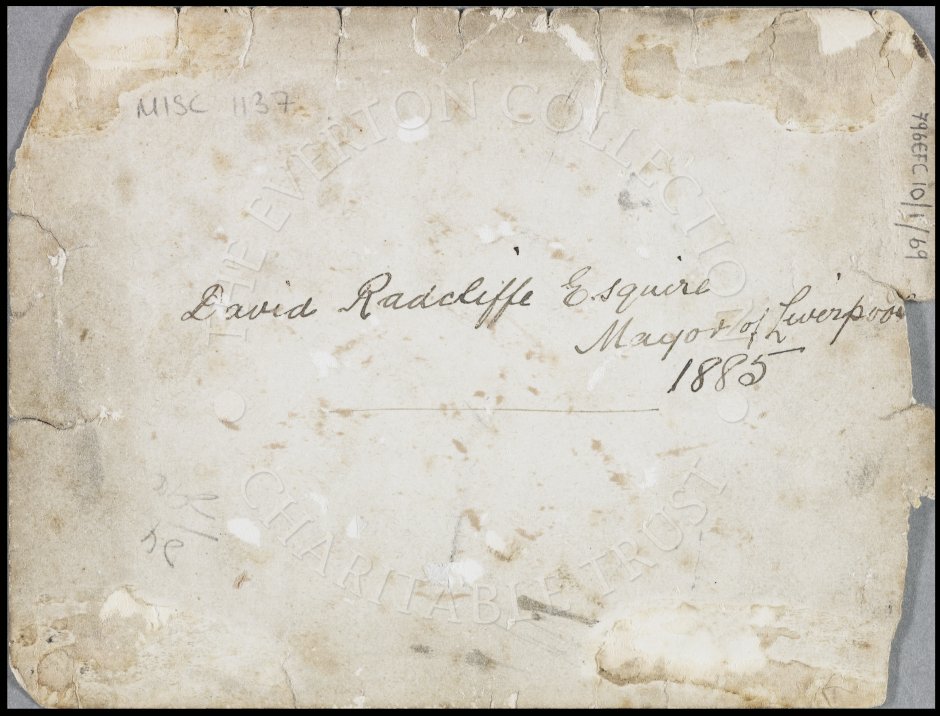 MISC 1137
796EFC10/1/69
THE EVERTON COLLECTION
David Radcliffe Esquire
Mayor of Liverpool
1885
CHARITABLE TRUST